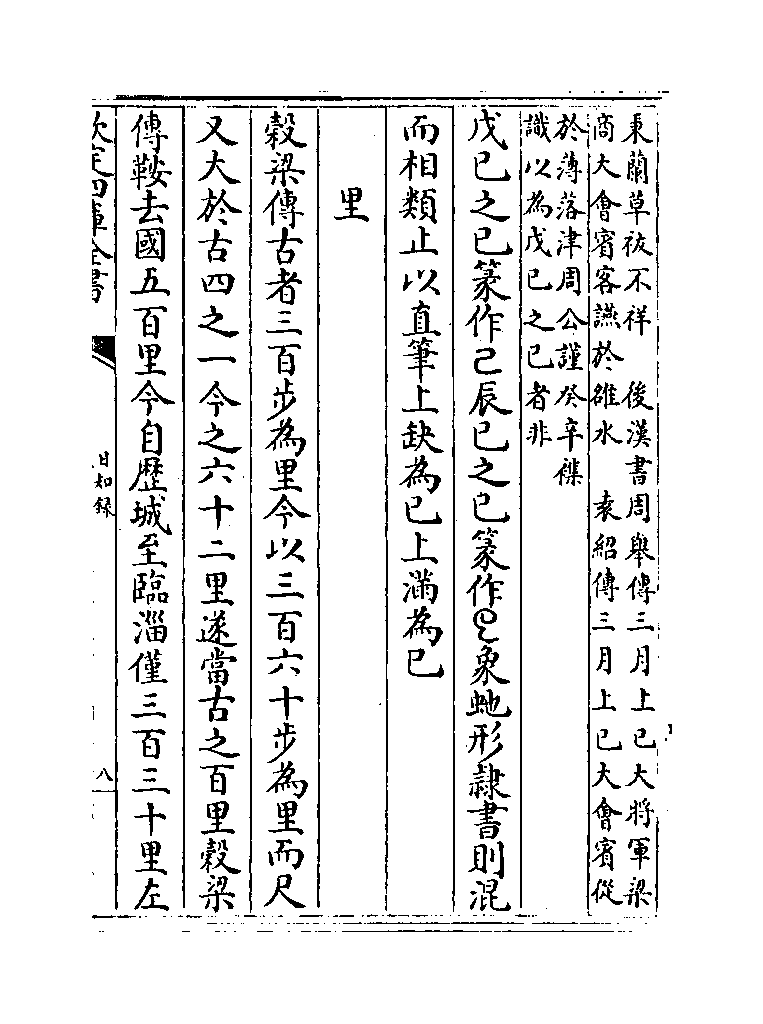 秉蘭草祓不祥　後漢書周舉傳三月上巳大將軍梁
商大會賓客讌於雒水　袁紹傳三月上巳大會賓從
於薄落津周公謹癸辛襍
識以為戊己之己者非
戊己之己篆作己辰巳之巳篆作𢀳象虵形隷書則混
而相類止以直筆上缺為已上滿為巳
里
穀梁傳古者三百步為里今以三百六十步為里而尺
又大於古四之一今之六十二里遂當古之百里穀梁
傳鞍去國五百里今自歴城至臨淄僅三百三十里左
欽定四庫全書
日知録
八